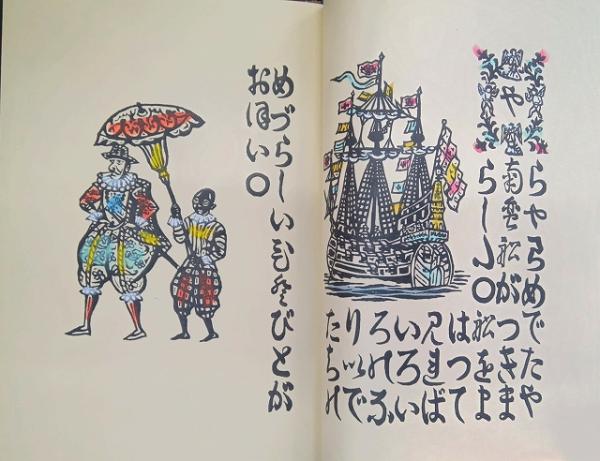 や
らやらめでたや
南蛮船がつきま
らし〇船をま
はつて
見れば
いろい
ろのな
りいで
たちの
めづらしいびとが
おほい〇